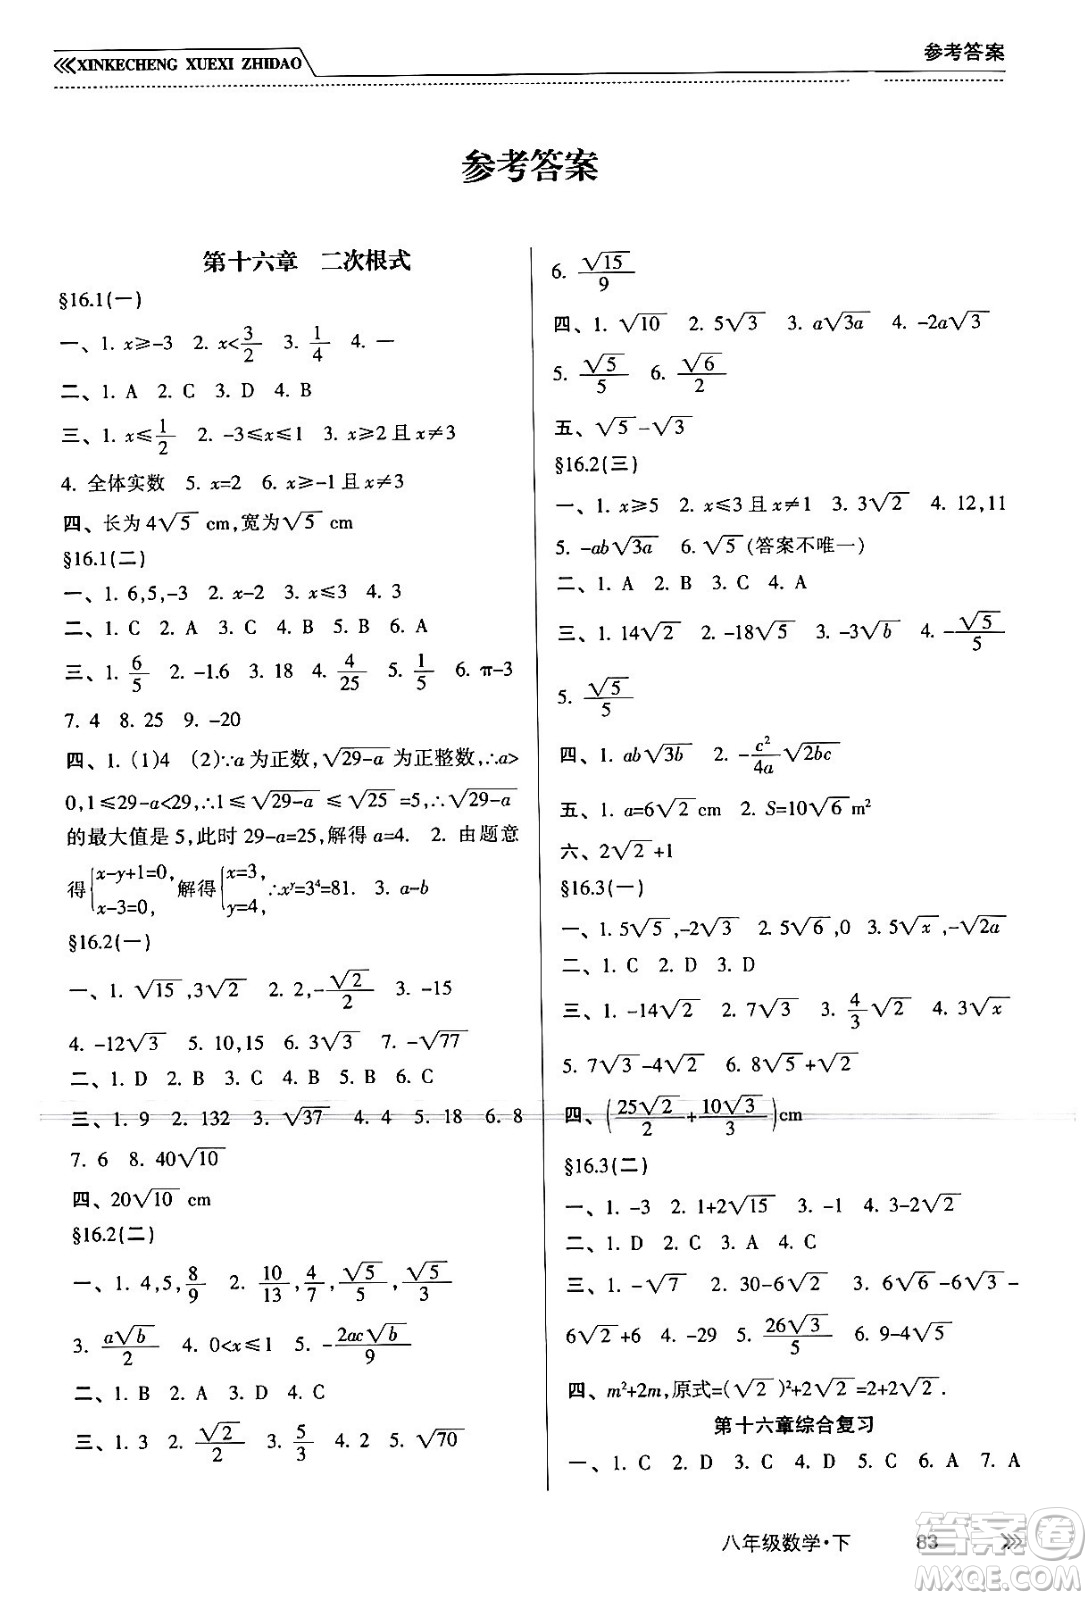 XINKECHENG XUEXI ZHIDAO
参考答案
参考答案
第十六章 二次根式
§16.1(一)
一、1. x≥-3 2. x<3/2 3. 1/4 4. 一
二、1. A 2. C 3. D 4. B
三、1. x≤1/2 2. -3≤x≤1 3. x≥2且x≠3
4. 全体实数 5. x=2 6. x≥-1且x≠3
四、长为4√5 cm,宽为√5 cm
§16.1(二)
一、1. 6,5,-3 2. x-2 3. x≤3 4. 3
二、1. C 2. A 3. C 4. B 5. B 6. A
三、1. 6/5 2. -1.6 3. 18 4. 4/25 5. 1/5 6. π-3
7. 4 8. 25 9. -20
四、1. (1)4 (2)∵a为正数,√(29-a)为正整数,∴a>
0,1≤29-a<29,∴1≤√(29-a)≤√25=5,∴√(29-a)
的最大值是5,此时29-a=25,解得a=4. 2. 由题意
得{x-y+1=0, x-3=0, 解得{x=3, y=4, ∴x^y=3⁴=81. 3. a-b
§16.2(一)
一、1. √15,3√2 2. 2,-√2/2 3. -15
4. -12√3 5. 10,15 6. 3√3 7. -√77
二、1. D 2. B 3. C 4. A 5. B 6. C
三、1. 9 2. 132 3. √37 4. 4 5. 18 6. 8
7. 6 8. 40√10
四、20√10 cm
§16.2(二)
一、1. 4,5,8/9 2. 10/13,4/7,√5/5,√5/3
3. a√b/2 4. 0<x≤1 5. -2ac√b/9
二、1. B 2. A 3. D 4. C
三、1. 3 2. √2/2 3. 5/3 4. 2 5. √70
6. √15/9
四、1. √10 2. 5√3 3. a√3a 4. -2a√3
5. √5/5 6. √6/2
五、√5-√3
§16.2(三)
一、1. x≥5 2. x≤3且x≠1 3. 3√2 4. 12,11
5. -ab√3a 6. √5(答案不唯一)
二、1. A 2. B 3. C 4. A
三、1. 14√2 2. -18√5 3. -3√b 4. -√5/5
5. √5/5
四、1. ab√3b 2. -c²/4a√2bc
五、1. a=6√2cm 2. S=10√6m²
六、2√2+1
§16.3(一)
一、1. 5√5,-2√3 2. 5√6,0 3. 5√x,-√2a
二、1. C 2. D 3. D
三、1. -14√2 2. 7√3 3. 4/3√2 4. 3√x
5. 7√3-4√2 6. 9√2
四、(25√2/2+10√3/3)cm
§16.3(二)
一、1. -3 2. 1+2√15 3. -1 4. 3-2√2
二、1. D 2. C 3. A 4. C
三、1. -√7 2. 30-6√2 3. 6√6-6√3-
6√2+6 4. -29 5. 26√3/5 6. 9-4√5
四、m²+2m,原式=(√2)²+2√2=2+2√2.
第十六章综合复习
一、1. C 2. D 3. C 4. D 5. C 6. A 7. A
八年级数学·下 83
答案圈
MXQE.COM